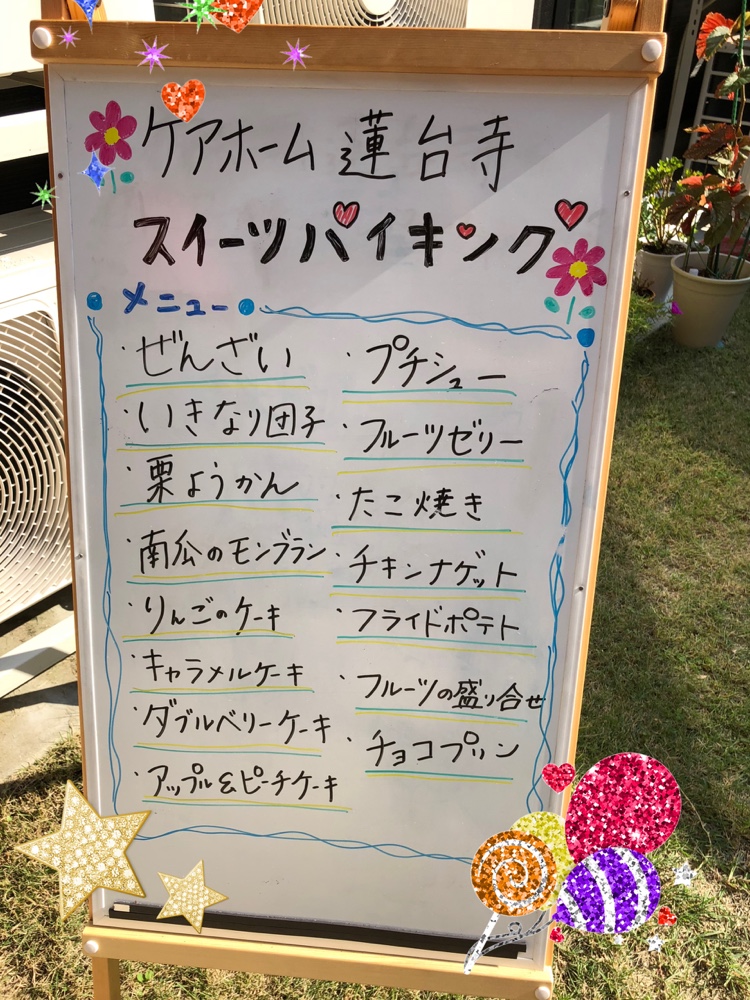 ケアホーム 蓮台寺
スイーツバイキング
メニュー
・ぜんざい
・いきなり団子
・栗ようかん
・南瓜のモンブラン
・りんごのケーキ
・キャラメルケーキ
・ダブルベリーケーキ
・アップル&ピーチケーキ
・プチシュー
・フルーツゼリー
・たこ焼き
・チキンナゲット
・フライドポテト
・フルーツの盛り合せ
・チョコプリン